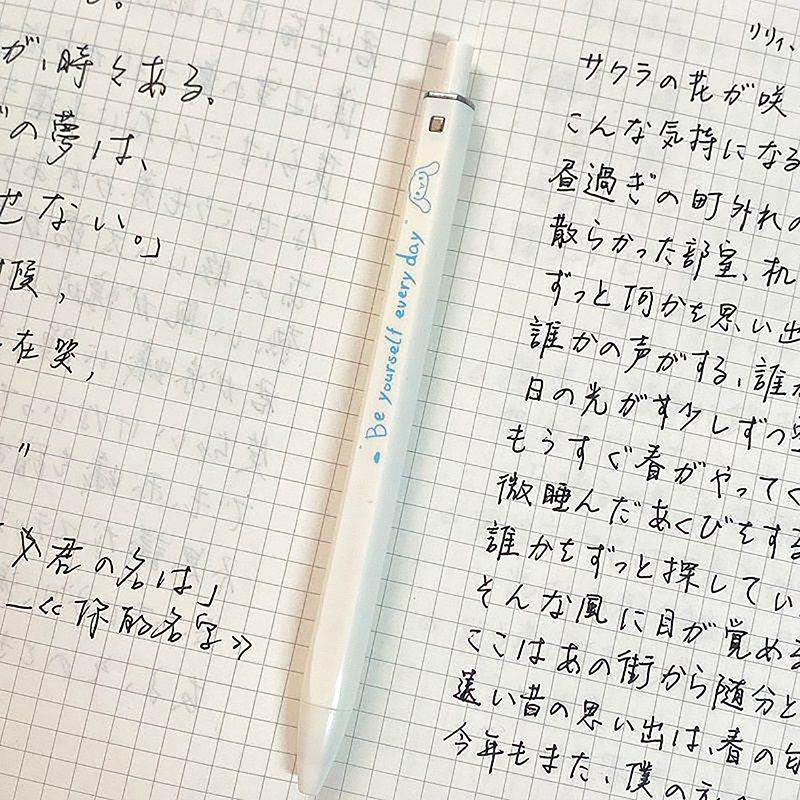 が、時々ある。
の夢は、
せない。」
候，
在笑，
”
君の名は」
—《你的名字》
Be yourself every day
リリイ、
サクラの花が咲
こんな気持になる
昼過ぎの町外れの
散らかった部室、机
ずっと何かを思い出
誰かの声がする、誰か
日の光が少しずつ
もうすぐ春がやってく
微睡んだあくびをする
誰かをずっと探してい
そんな風に目が覚める
ここはあの街から随分と
遠い昔の思い出は、春の匂
今年もまた、僕の